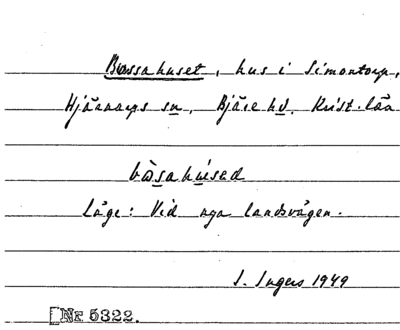 Bossahuset, hus i Simontorp,
Hjärnarps sn, Bjäre hd. Krist. län
Läge: Vid nya landsvägen.
I. Ingers 1949
Nr 5322.